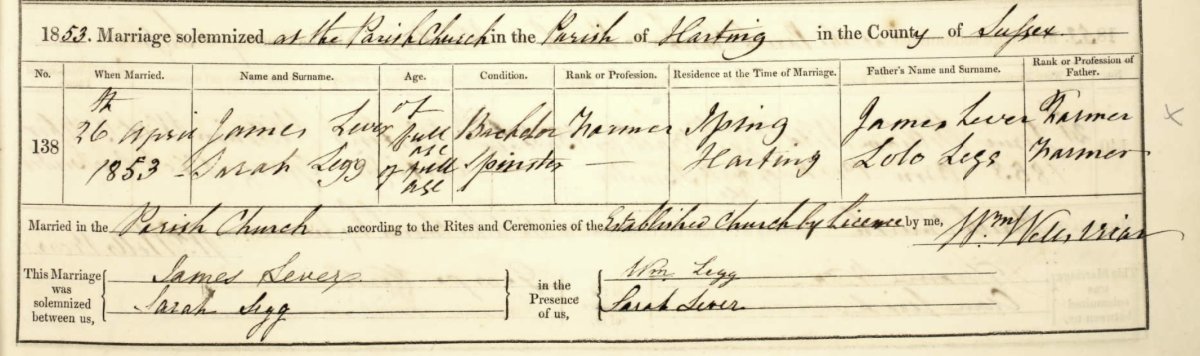 1853. Marriage solemnized at the Parish Church in the Parish of Harting in the County of Sussex.
No. When Married. Name and Surname. Age. Condition. Rank or Profession. Residence at the Time of Marriage. Father's Name and Surname. Rank or Profession of Father.
138 26th April James Lever of full age Bachelor Farmer Iping James Lever Farmer
1853 Sarah Legg of full age Spinster — Harting Lolo Legg Farmer
Married in the Parish Church according to the Rites and Ceremonies of the Established Church by Licence by me, Wm Wells, Vicar
This Marriage was solemnized between us, James Lever in the Presence of us, Wm Legg
Sarah Legg Sarah Lever